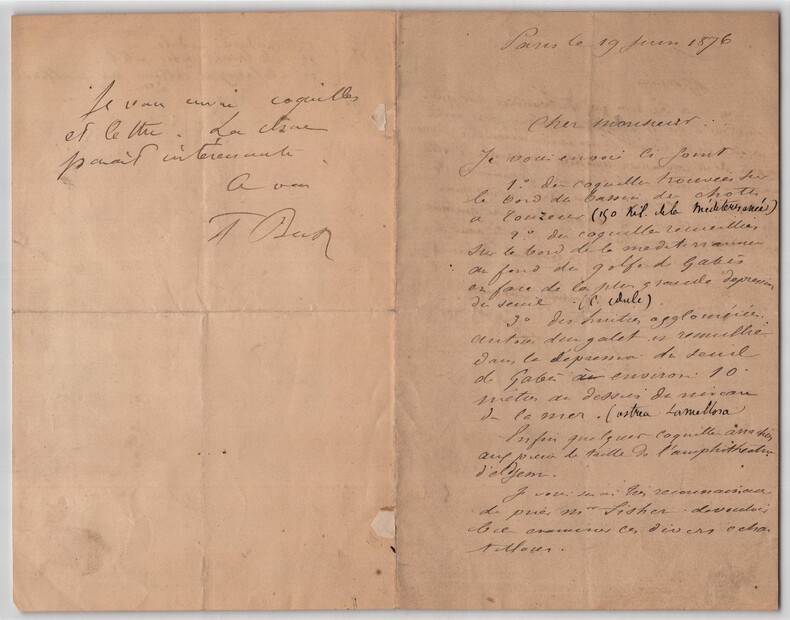 Paris le 19 Juin 1876
Cher monsieur :
Je vous envoie ci joint
1° des coquilles trouvées sur
le bord du bassin des chotts
a Touzeur (150 kil. de la Méditerranée)
2° des coquilles recueillies
sur le bord de la mediterrannee
au fond du golfe de Gabès
en face de la plus grande depression
du seuil. (C. edule)
3° des huitres agglomérées
autour d'un galet et recueillies
dans la dépression du seuil
de Gabès à environ 10
mètres au dessus du niveau
de la mer. (ostrea Lamellosa
Enfin quelques coquilles arrachées
aux pierres de taille de l'amphitheatre
d'el Djem.
Je vous serai tres reconnaissant
de prier Mr Fisher de vouloir
bien examiner ces divers echan
tillons.
Je vous envoie coquilles
et lettre. La chose
parait intéressante
A vous